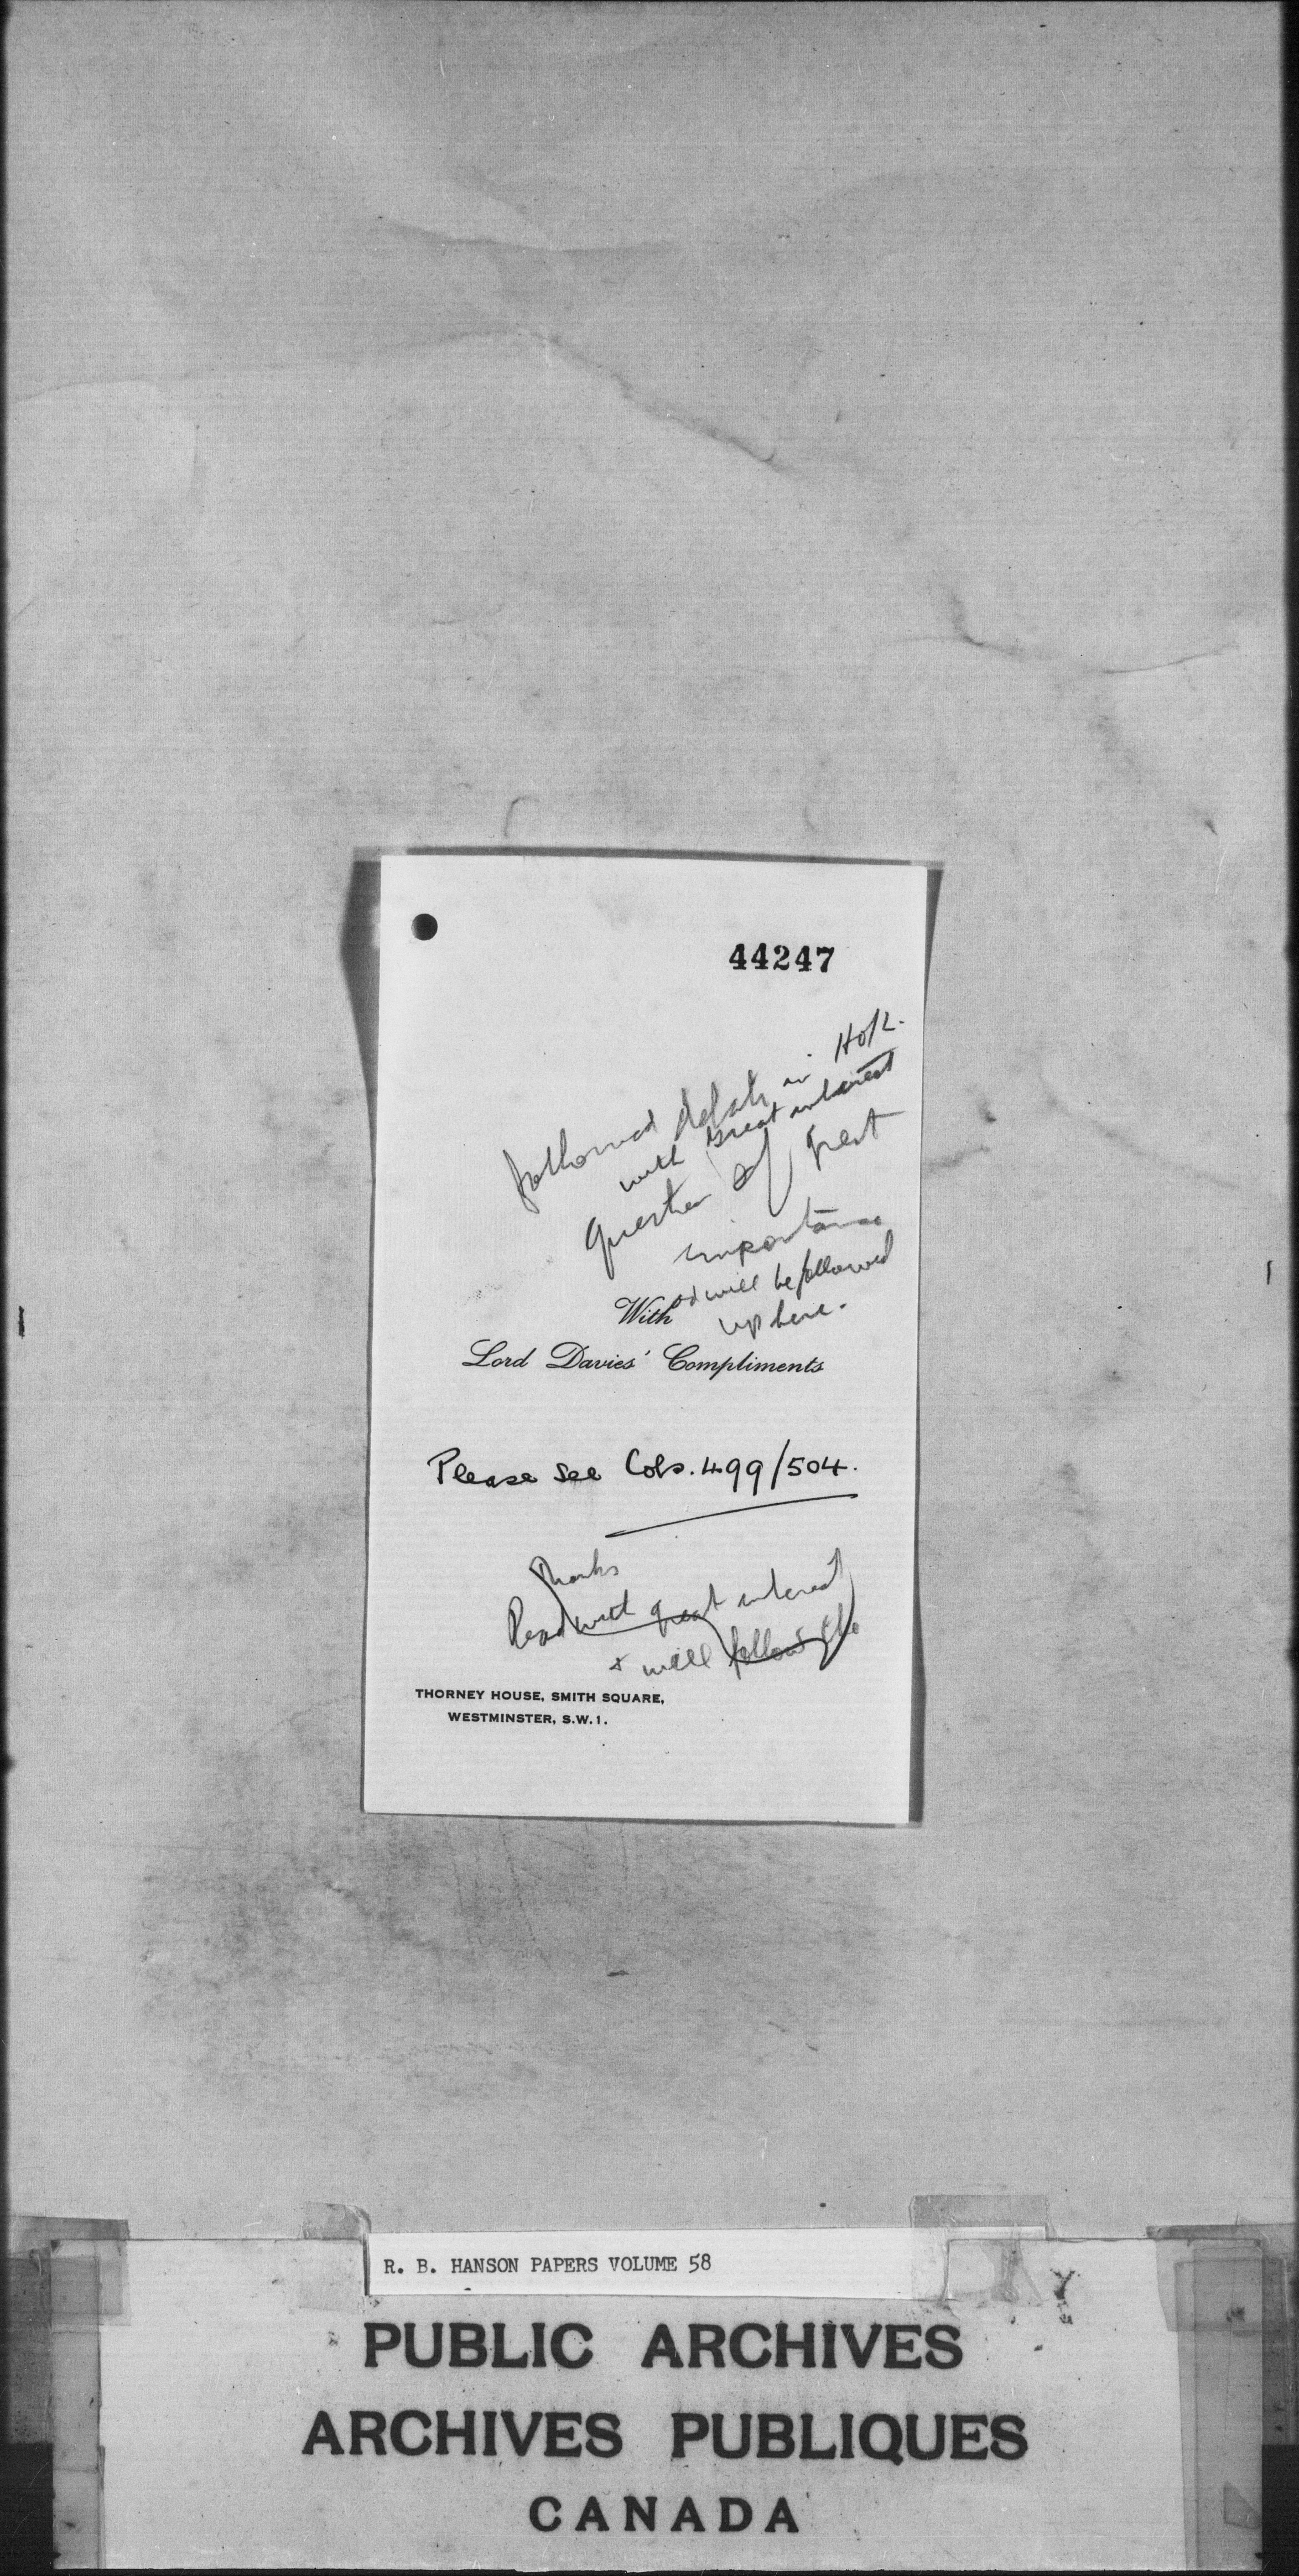 44247
followed debate in HofL.
with great interest
Question of great
importance
& will be followed
up here.
With
Lord Davies' Compliments
Please see Cols. 499/504.
Thanks
Read with great interest
& will follow
THORNEY HOUSE, SMITH SQUARE,
WESTMINSTER, S.W.1.
R. B. HANSON PAPERS VOLUME 58
PUBLIC ARCHIVES
ARCHIVES PUBLIQUES
CANADA